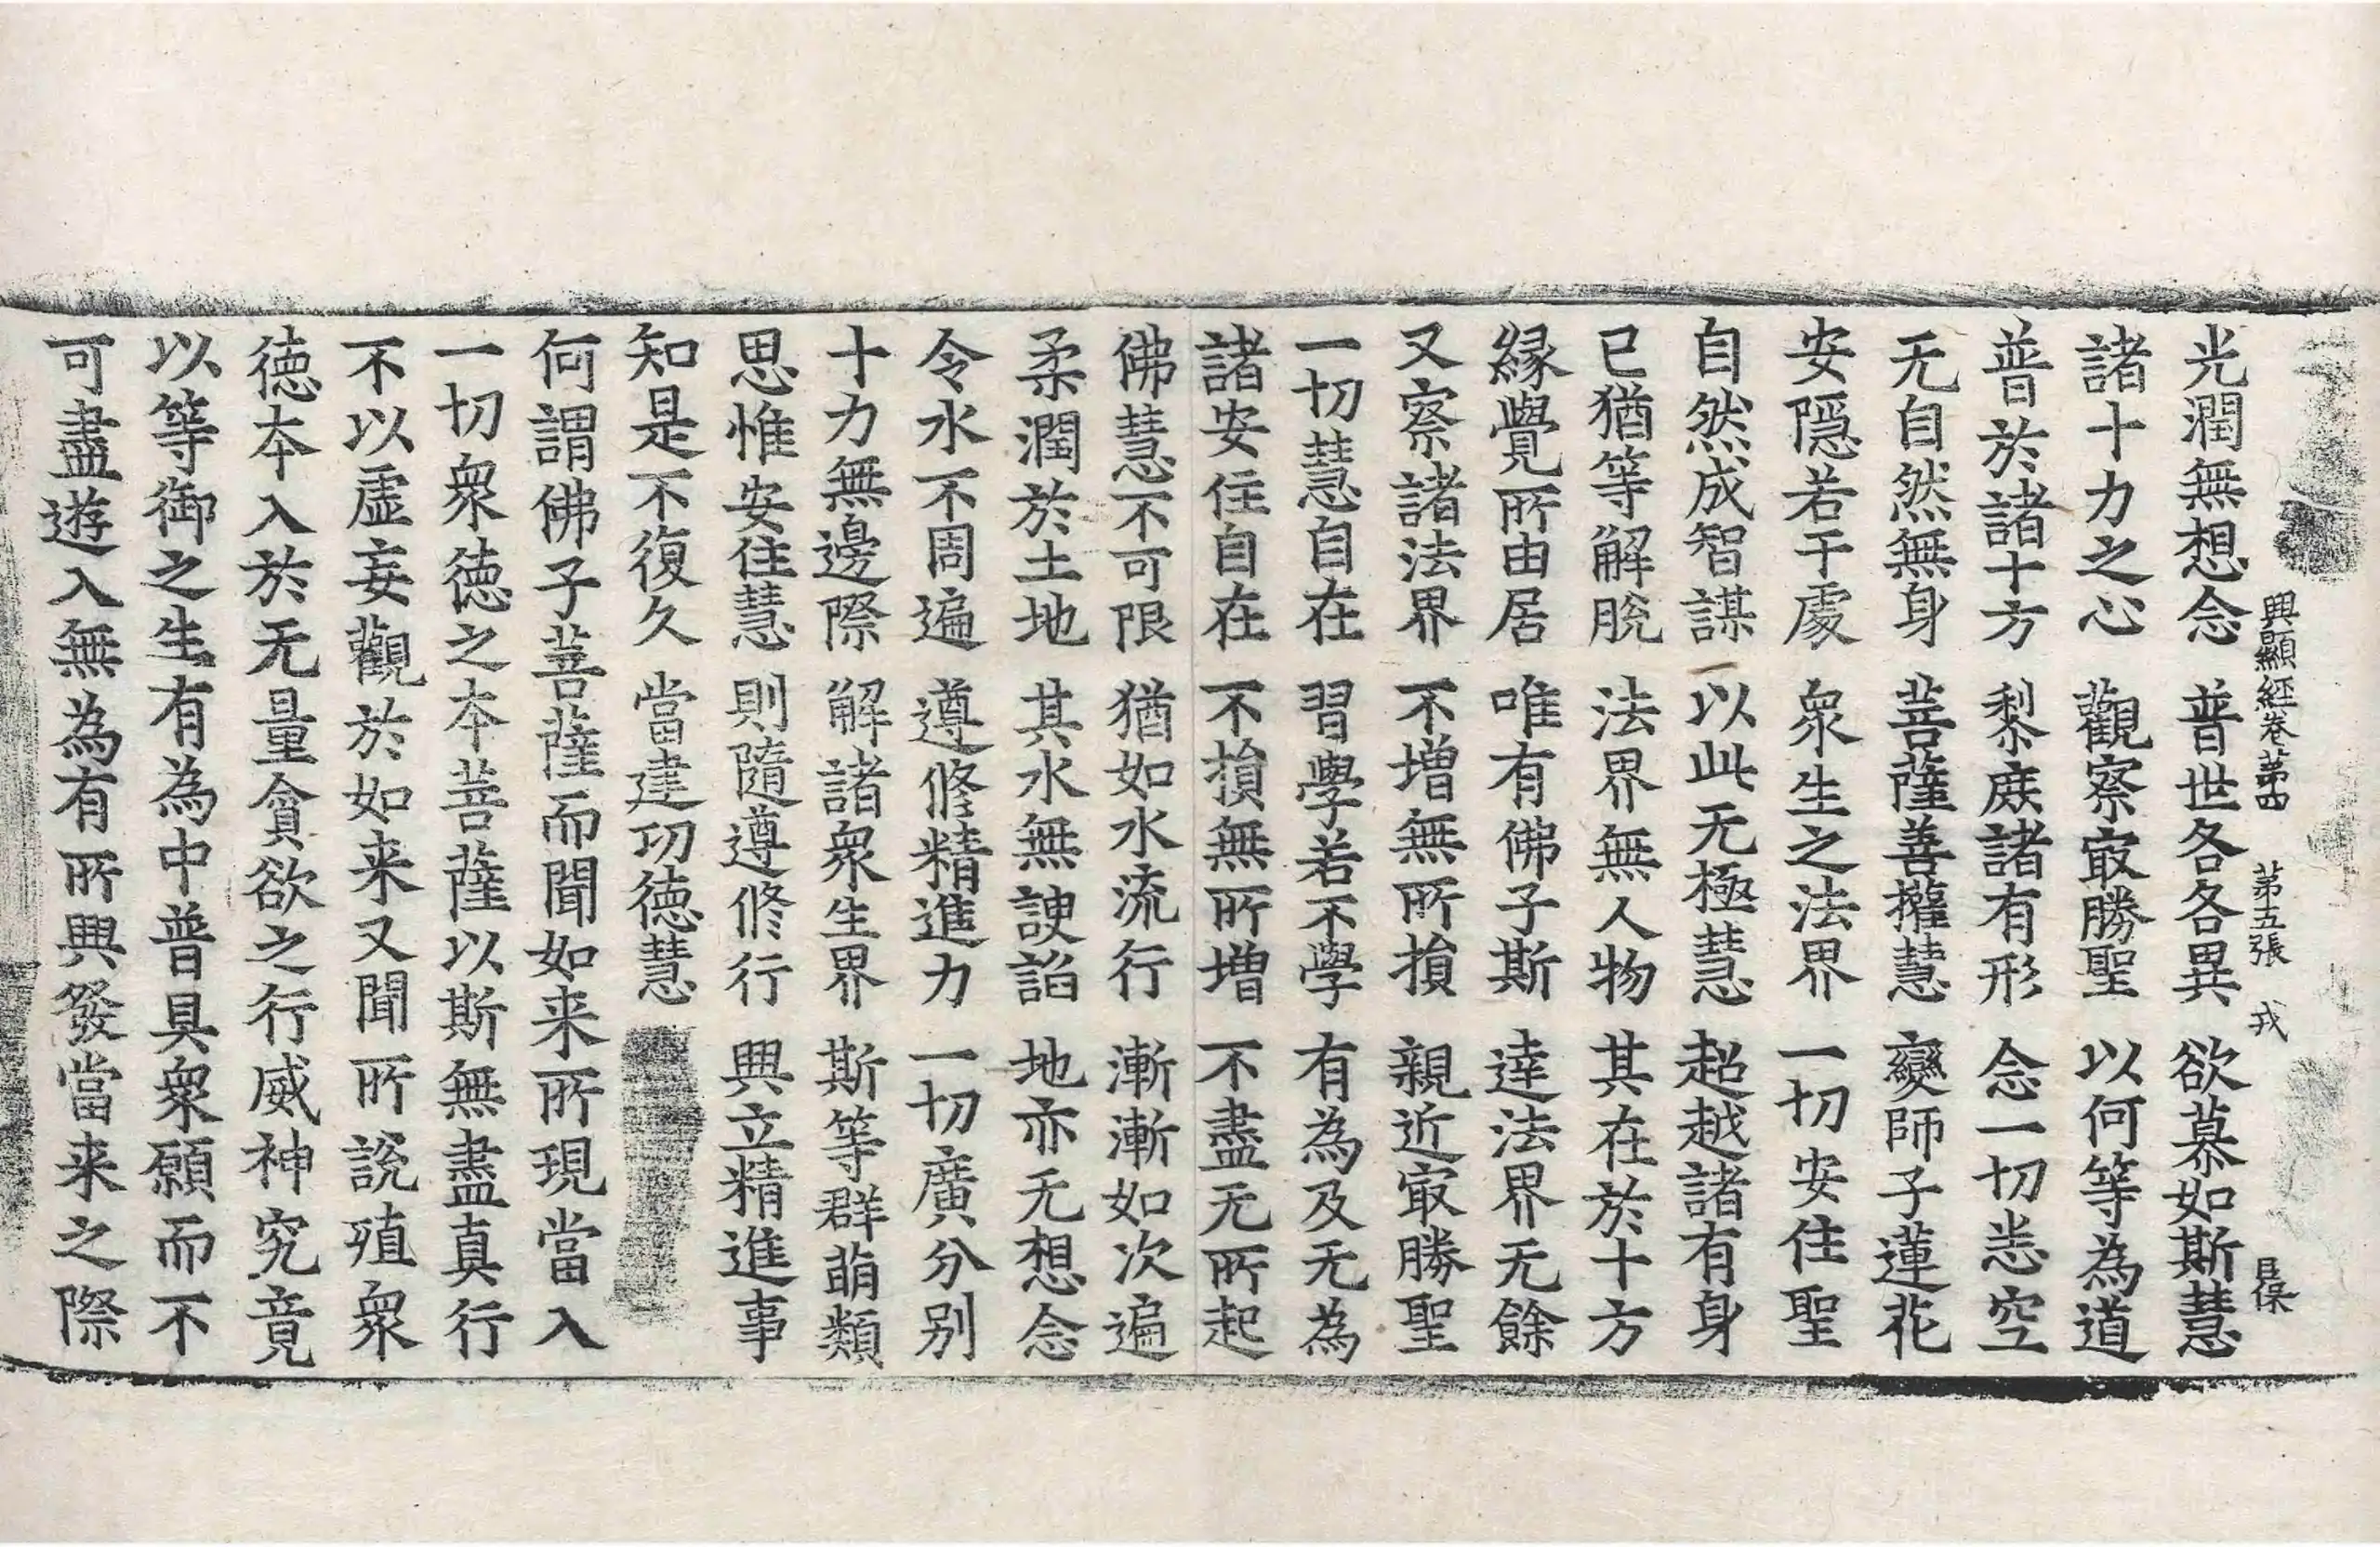 興顯經卷苐四 苐五張 戎 昌保
光潤無想念 普世各各異 欲慕如斯慧
諸十力之心 觀察㝡勝聖 以何等為道
普於諸十方 黎庶諸有形 念一切恙空
无自然無身 菩薩善權慧 變師子蓮花
安隱若干處 衆生之法界 一切安住聖
自然成智謀 以此无極慧 超越諸有身
已猶等解脫 法界無人物 其在於十方
緣覺所由居 唯有佛子斯 達法界无餘
又察諸法界 不增無所損 親近㝡勝聖
一切慧自在 習學若不學 有為及无為
諸安住自在 不損無所增 不盡无所起
佛慧不可限 猶如水流行 漸漸如次遍
柔潤於土地 其水無諛諂 地亦无想念
令水不周遍 遵修精進力 一切廣分別
十力無邊際 解諸衆生界 斯等群萌類
思惟安住慧 則隨遵修行 興立精進事
知是不復久 當建功德慧
何謂佛子菩薩而聞如来所現當入
一切衆德之本菩薩以斯無盡真行
不以虛妄觀於如来又聞所說殖衆
德本入於无量貪欲之行威神究竟
以等御之生有為中普具衆願而不
可盡遊入無為有所興發當来之際